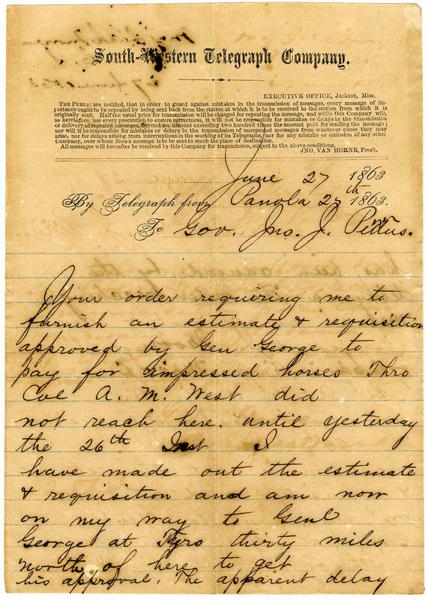 South-Western Telegraph Company.
EXECUTIVE OFFICE, Jackson, Miss.
THE PUBLIC are notified, that in order to guard against mistakes in the transmission of messages, every message of im-
portance ought to be repeated by being sent back from the station at which it is to be received to the station from which it is
originally sent. Half the usual price for transmission will be charged for repeating the message, and while this Company will,
as heretofore, use every precaution to ensure correctness, it will not be responsible for mistakes or delays in the transmission
or delivery of repeated messages, beyond an amount exceeding two hundred times the amount paid for sending the message;
nor will it be responsible for mistakes or delays in the transmission of unrepeated messages from whatever cause they may
arise, nor for delays arising from interruptions in the working of its Telegraph, nor for any mistake or omission of any other
Company, over whose lines a message is to be sent to reach the place of destination.
All messages will hereafter be received by this Company for transmission, subject to the above conditions.
JNO. VAN HORNE, Pres't.
June 27 1863
By Telegraph from Panola 27th 1863.
To Gov. Jno. J. Pettus.
Your order requiring me to
furnish an estimate & requisition
approved by Gen George to
pay for impressed horses Thro
Col A. M. West did
not reach here. until yesterday
the 26th Inst I
have made out the estimate
& requisition and am now
on my way to Genl
George at Tyro thirty miles
north of here to get
his approval. The apparent delay